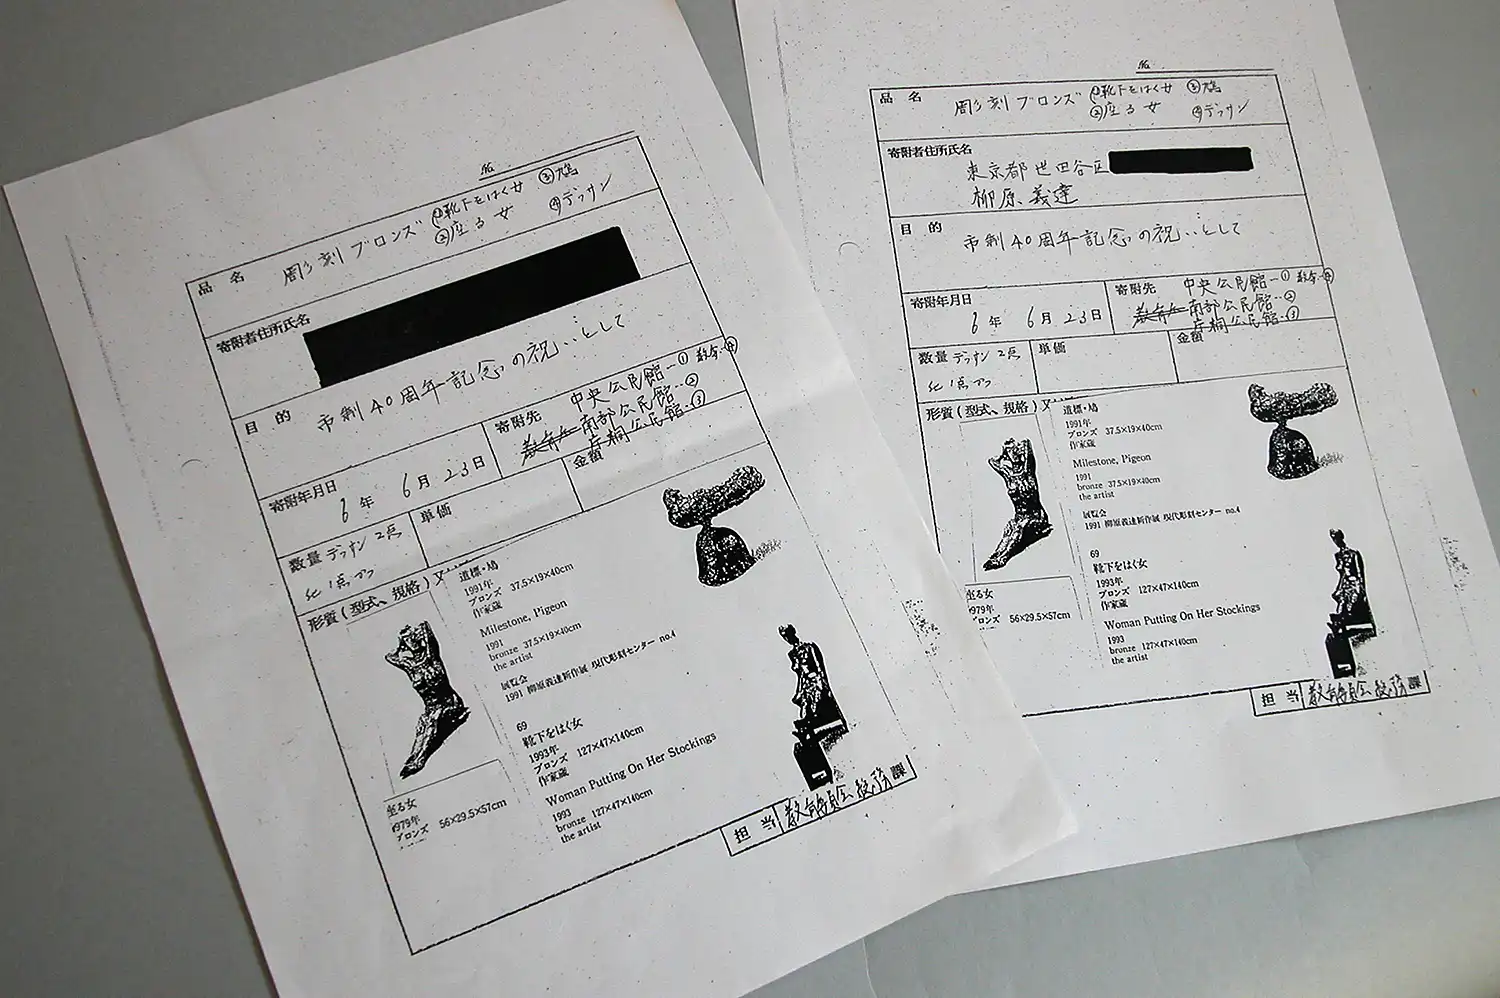 品 名
彫刻ブロンズ
①靴下をはく女 ③鳩
②座る女 ④デッサン
寄附者住所氏名
目 的
市制40周年記念の祝いとして
寄附年月日
6年 6月 23日
寄附先
中央公民館…①
南部公民館…②
片桐公民館…③
数量 デッサン 2点
他 1点ずつ
単価
金額
形質(型式、規格)又
道標・鳩
1991年
ブロンズ 37.5×19×40cm
作家蔵
Milestone, Pigeon
1991
bronze 37.5×19×40cm
the artist
展覧会
1991 柳原義達新作展 現代彫刻センター no.4
69
靴下をはく女
1993年
ブロンズ 127×47×140cm
作家蔵
Woman Putting On Her Stockings
1993
bronze 127×47×140cm
the artist
坐る女
1979年
ブロンズ 56×29.5×57cm
担 当 教育委員会総務課
品 名
彫刻ブロンズ
①靴下をはく女 ③鳩
②座る女 ④デッサン
寄附者住所氏名
東京都世田谷区
柳原義達
目 的
市制40周年記念の祝いとして
寄附年月日
6年 6月 23日
寄附先
中央公民館…①
南部公民館…②
片桐公民館…③
数量 デッサン 2点
他 1点ずつ
単価
金額
形質(型式、規格)又
道標・鳩
1991年
ブロンズ 37.5×19×40cm
作家蔵
Milestone, Pigeon
1991
bronze 37.5×19×40cm
the artist
展覧会
1991 柳原義達新作展 現代彫刻センター no.4
69
靴下をはく女
1993年
ブロンズ 127×47×140cm
作家蔵
Woman Putting On Her Stockings
1993
bronze 127×47×140cm
the artist
坐る女
1979年
ブロンズ 56×29.5×57cm
担 当 教育委員会総務課